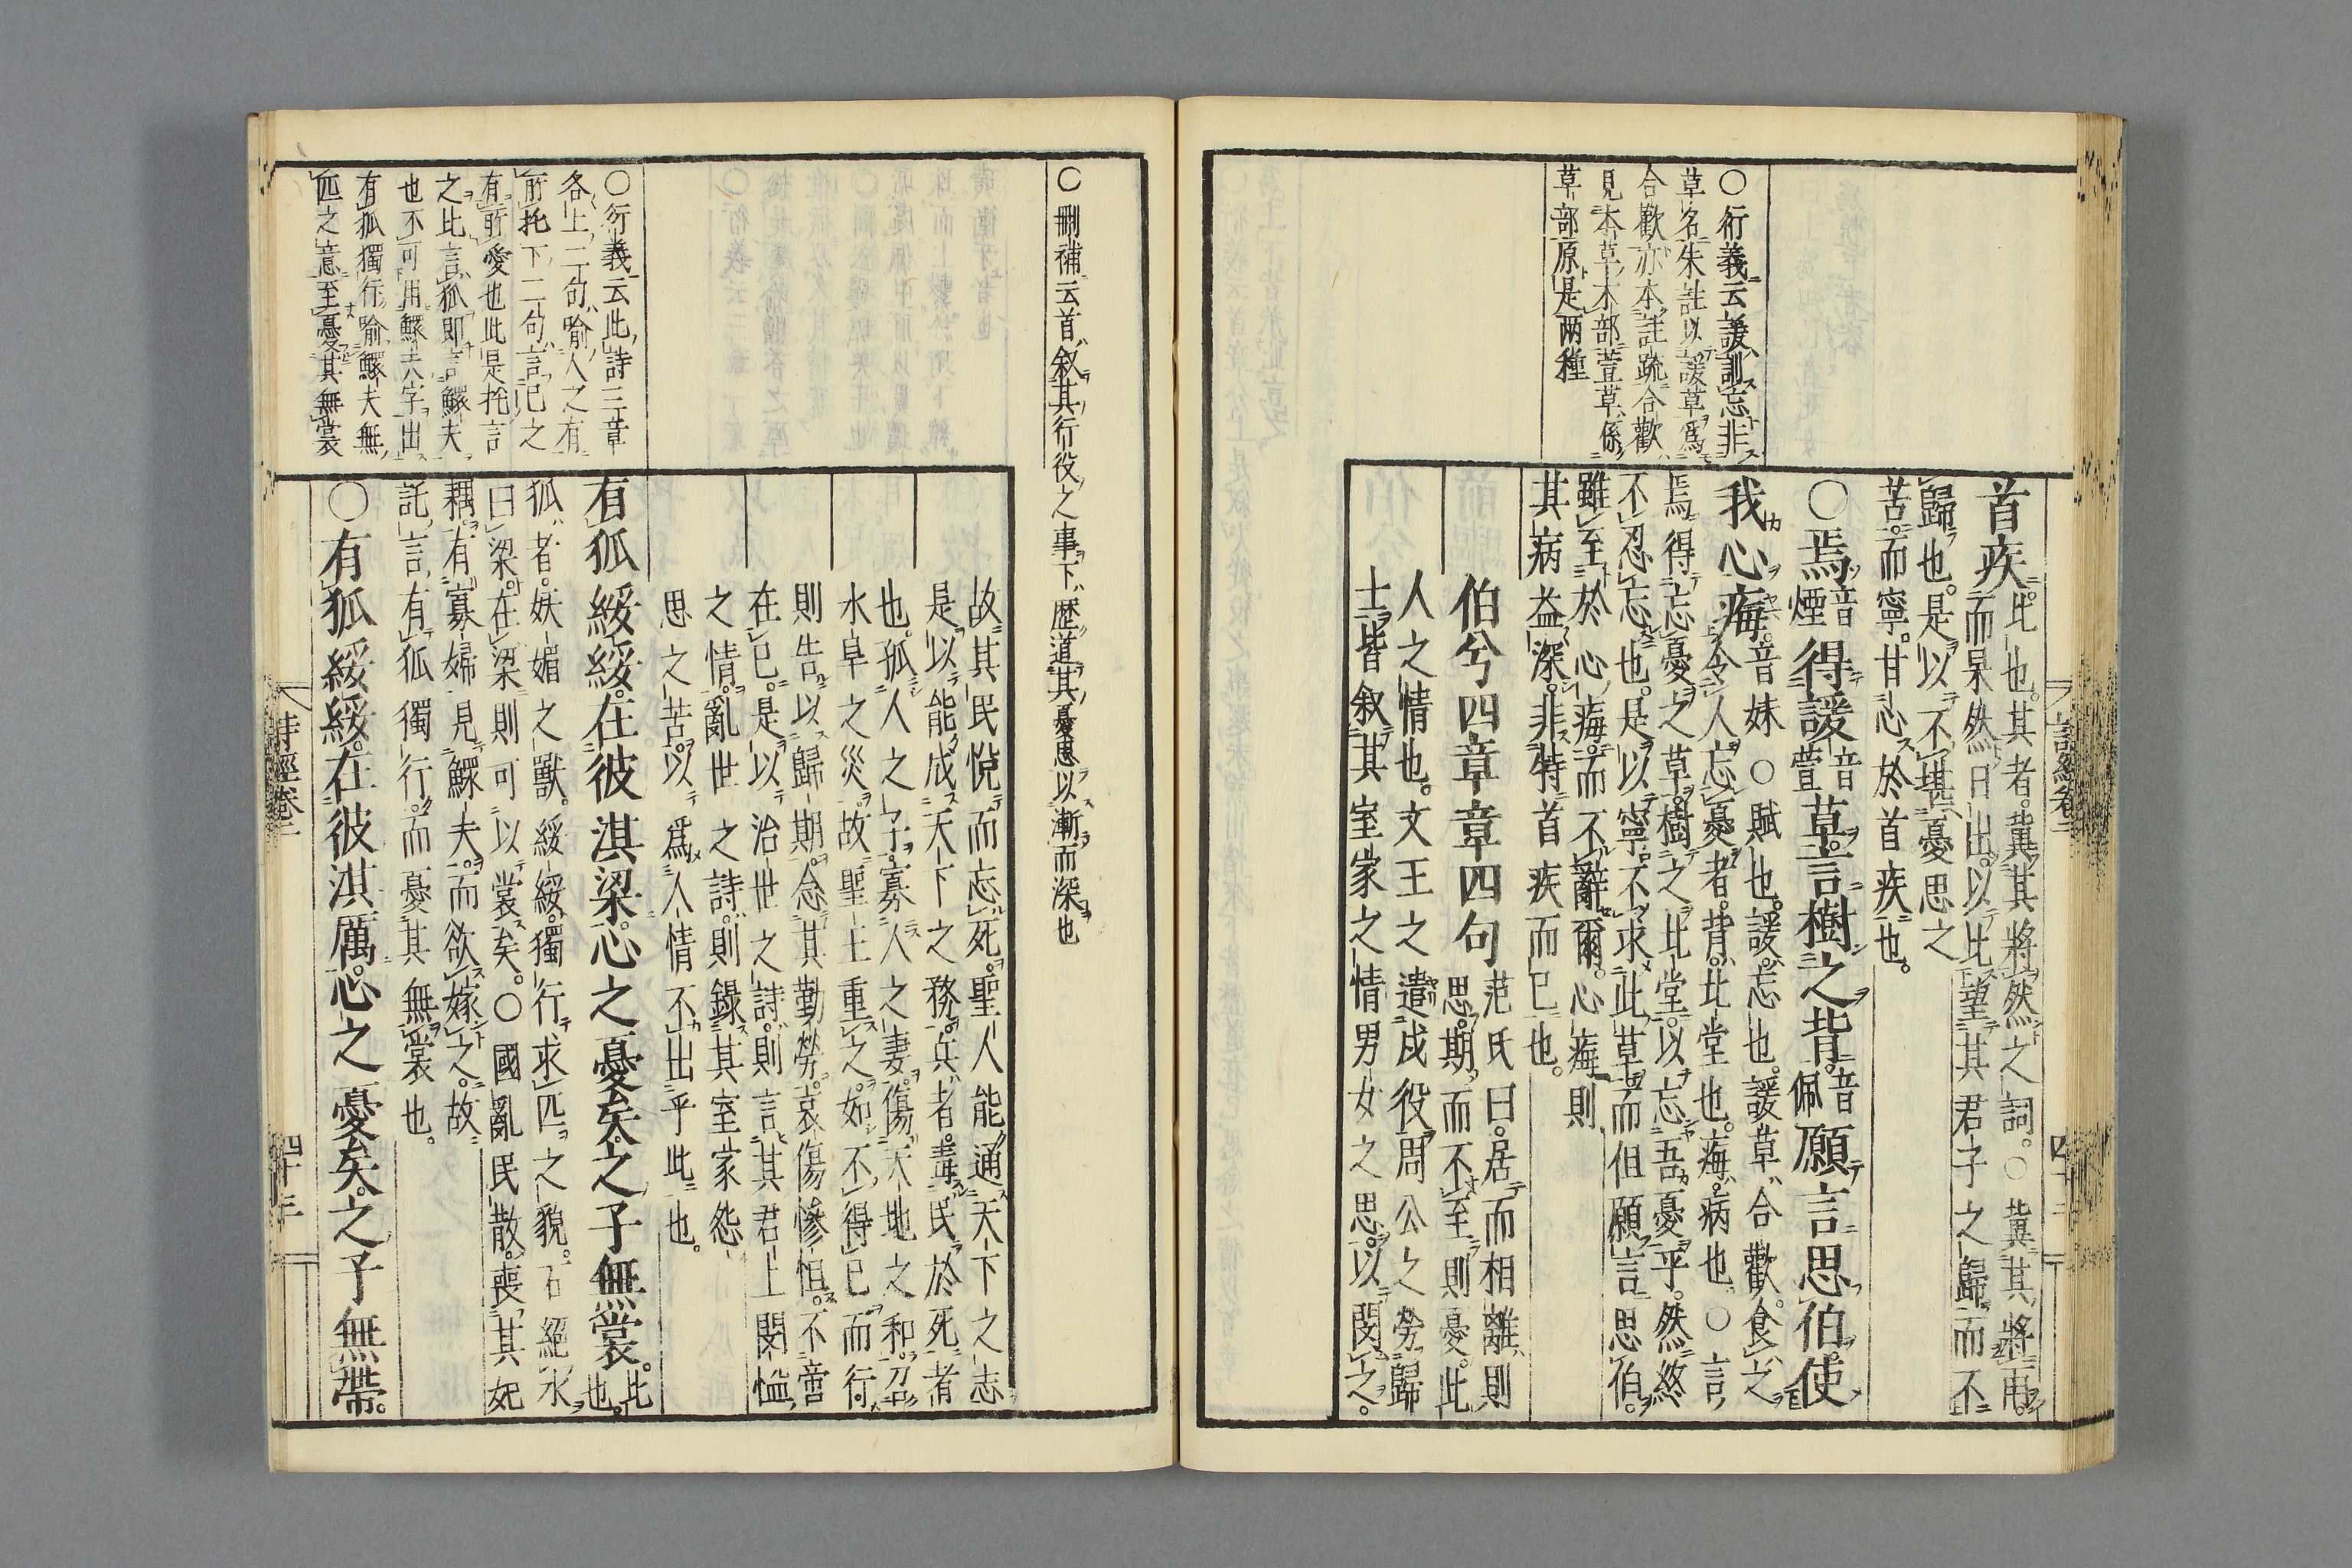 詩經卷二 四十二
○衍義云諼訓忘非
草名朱註以諼草爲
合歡亦本註疏合歡
見本草木部萱草係
草部原是兩種
首疾。比也。其者。冀其將然之詞。○冀其將雨。
而杲然日出。以比望其君子之歸而不
歸也。是以不堪憂思之
苦。而寧甘心於首疾也。
○焉音煙得諼音萱草。言樹之背。音佩願言思伯。使
我心痗。音妹 ○賦也。諼。忘也。諼草。合歡。食之
令人忘憂者。背。北堂也。痗。病也。○言
焉得忘憂之草。樹之北堂。以忘吾憂乎。然終
不忍忘也。是以寧不求此草。而但願言思伯。
雖至於心痗。而不辭爾。心痗則
其病益深。非特首疾而已也。
伯兮四章章四句 范氏曰。居而相離則
思。期而不至則憂。此
人之情也。文王之遣戍役。周公之勞歸
士。皆叙其室家之情男女之思。以閔之。
○刪補云首叙其行役之事下歷道其憂思以漸而深也
故其民悅而忘死。聖人能通天下之志
是以能成天下之務。兵者。毒民於死者
也。孤人之子。寡人之妻。傷天地之和。召
水旱之災。故聖王重之。如不得已而行
則告以歸期。念其勤勞。哀傷慘怛。不啻
在已。是以治世之詩。則言其君上閔恤
之情。亂世之詩。則錄其室家怨
思之苦。以爲人情不出乎此也。
○衍義云此詩三章
各上二句喻人之有
所托下二句言己之
有所愛也此是托言
之比言狐即言鰥夫
也不可用鰥夫字出
有狐獨行喻鰥夫無
匹之意至憂其無裳
有狐綏綏。在彼淇梁。心之憂矣。之子無裳。比也。
狐者。妖媚之獸。綏綏。獨行求匹之貌。石絕水
曰梁。在梁則可以裳矣。○國亂民散。喪其妃
耦。有寡婦見鰥夫。而欲嫁之。故
託言有狐獨行。而憂其無裳也。
○有狐綏綏。在彼淇厲。心之憂矣。之子無帶。
詩經卷二 四十三